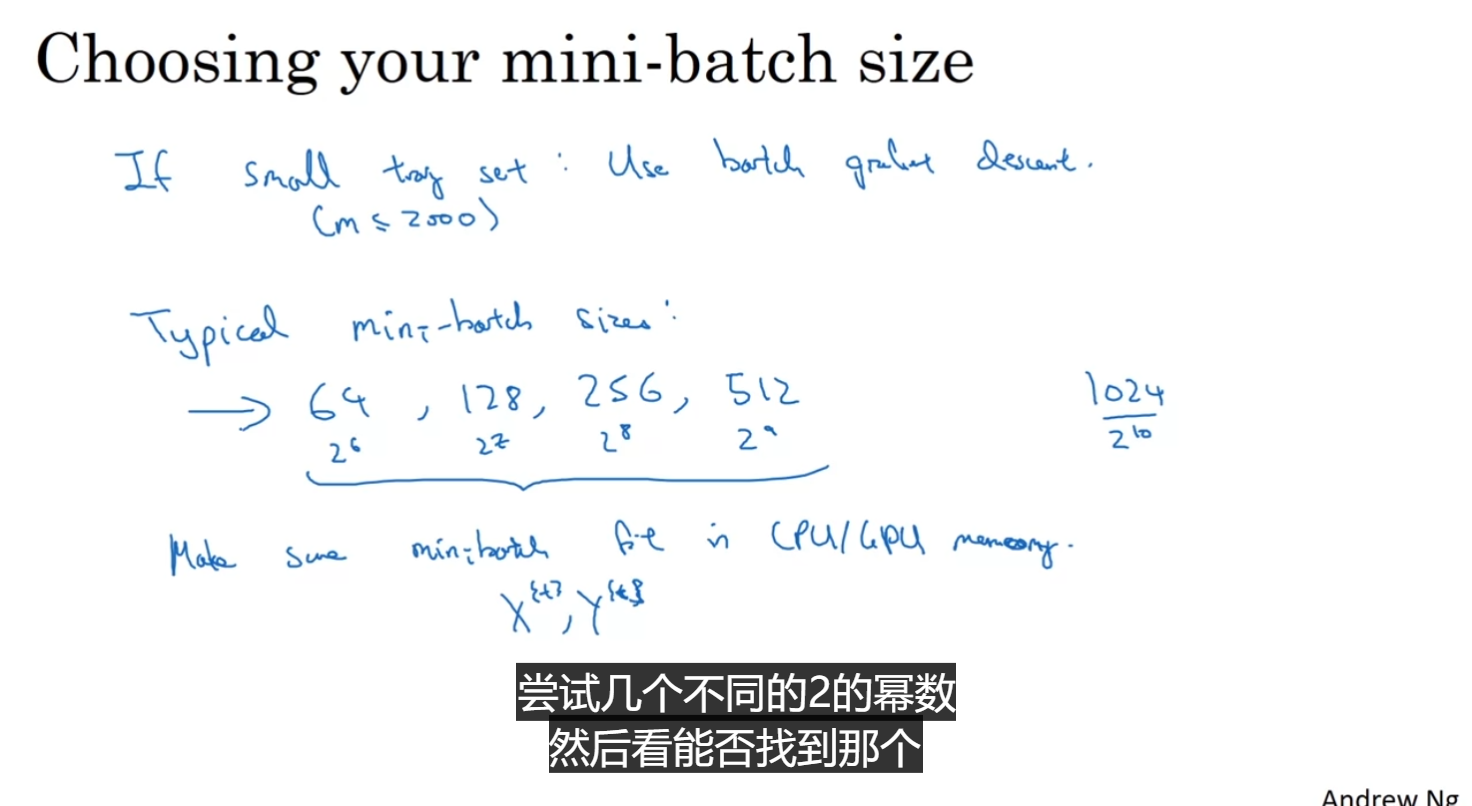 Choosing your mini-batch size
If small trag set : Use batch gradient descent.
(m ≤ 2000)
Typical mini-batch sizes:
→ 64, 128, 256, 512 1024
2⁶ 2⁷ 2⁸ 2⁹ 2¹⁰
Make sure minibatch fit in CPU/GPU memory.
X^{t}, Y^{t}
尝试几个不同的2的幂数
然后看能否找到那个
Andrew Ng